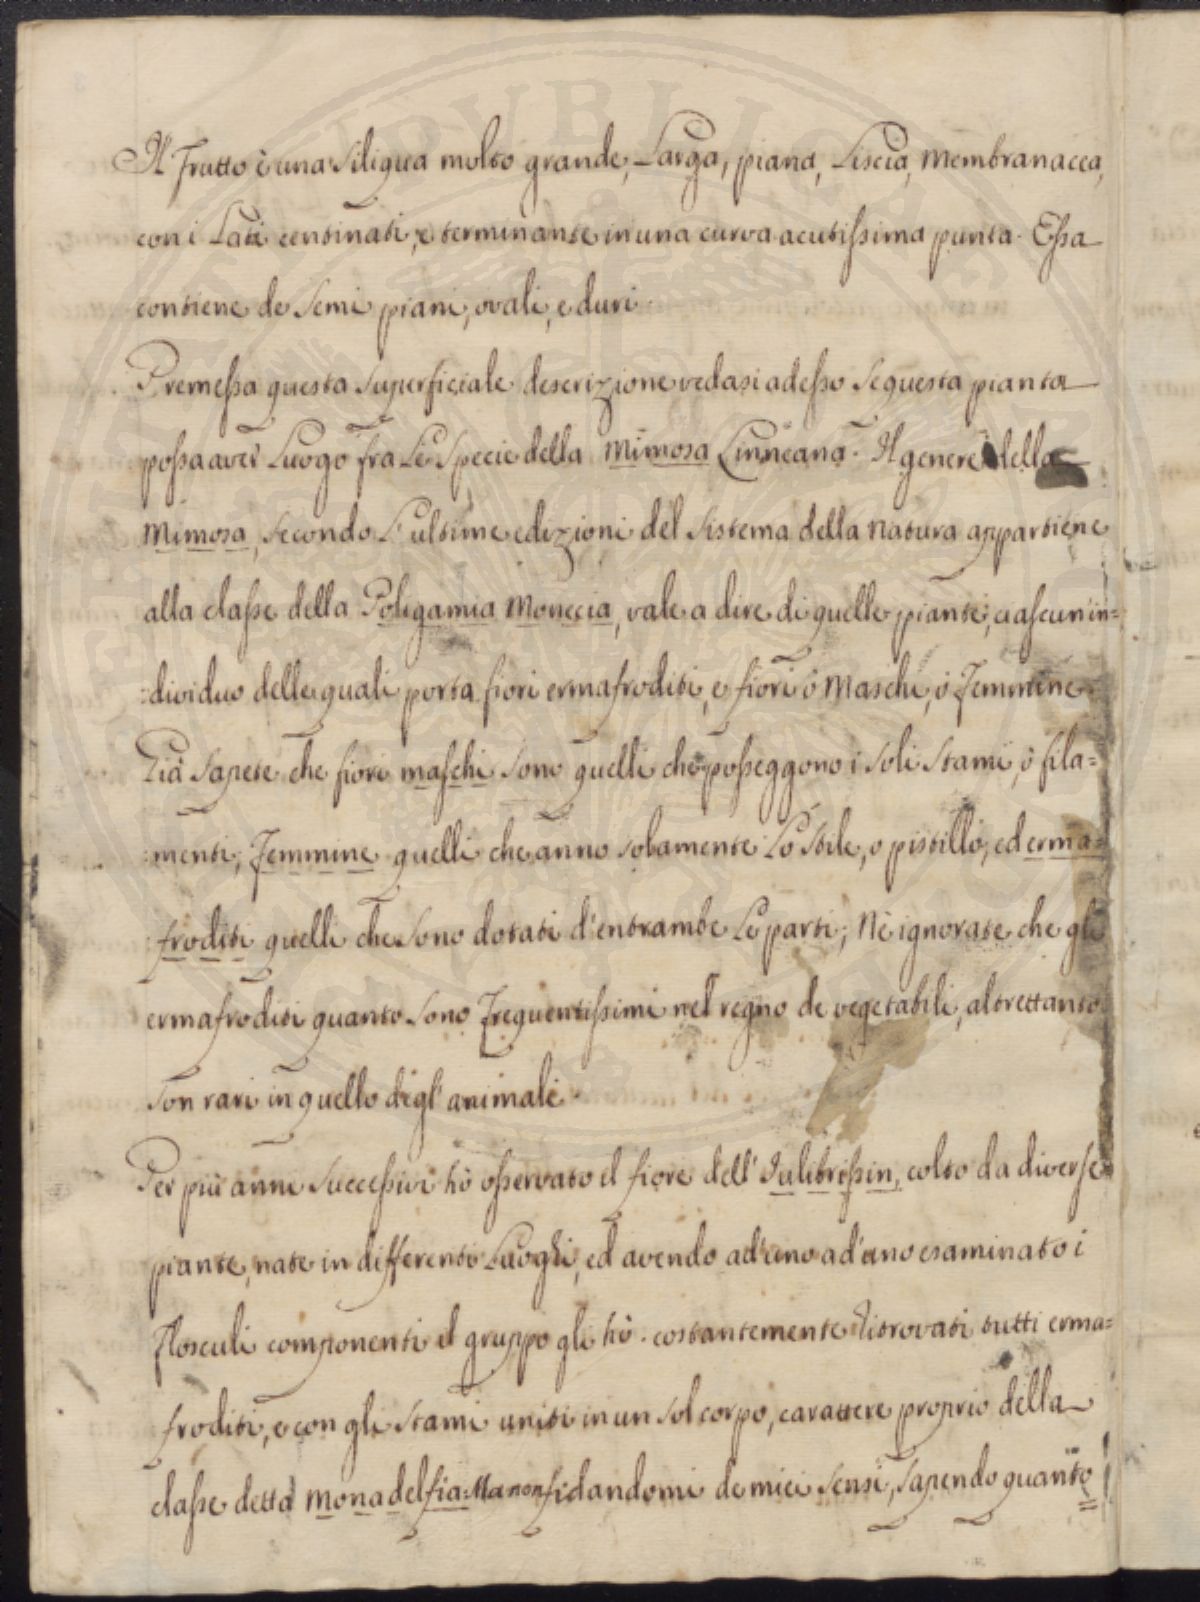 Il Frutto è una Siliqua molto grande, Larga, piana, Liscia, membranacea,
con i Lati centinati, e terminante in una curva acutissima punta. Essa
contiene de Semi piani, ovali, e duri.
Premessa questa superficiale descrizione vedasi adesso se questa pianta
possa aver Luogo fra Le Specie della Mimosa Linneana. Il genere della
Mimosa, secondo L'ultime edizioni del Sistema della natura appartiene
alla classe della Poligamia Monecia, vale a dire di quelle piante, ciascun in=
:dividuo delle quali porta fiori ermafroditi, e fiori ò Maschi, ò Femmine.
Già Sapete che fiori maschi sono quelli che posseggono i soli Stami, ò fila=
:menti; Femmine quelli che anno solamente Lo Stile, o pistillo; ed erma=
:froditi quelli che sono dotati d'entrambe Le parti; Nè ignorate che gli
ermafroditi quanto sono Frequentissimi nel regno de vegetabili, altrettanto
son rari in quello degl'animali.
Per più anni Successivi hò osservato il fiore dell'Julibrissin, colto da diverse
piante, nate in differenti Luoghi, ed avendo ad'uno ad'uno esaminato i
flosculi componenti il gruppo gli hò costantemente ritrovati tutti erma=
froditi, e con gli stami uniti in un sol corpo, carattere proprio della
classe detta Monadelfia. Ma non fidandomi de miei Sensi, Sapendo quanto